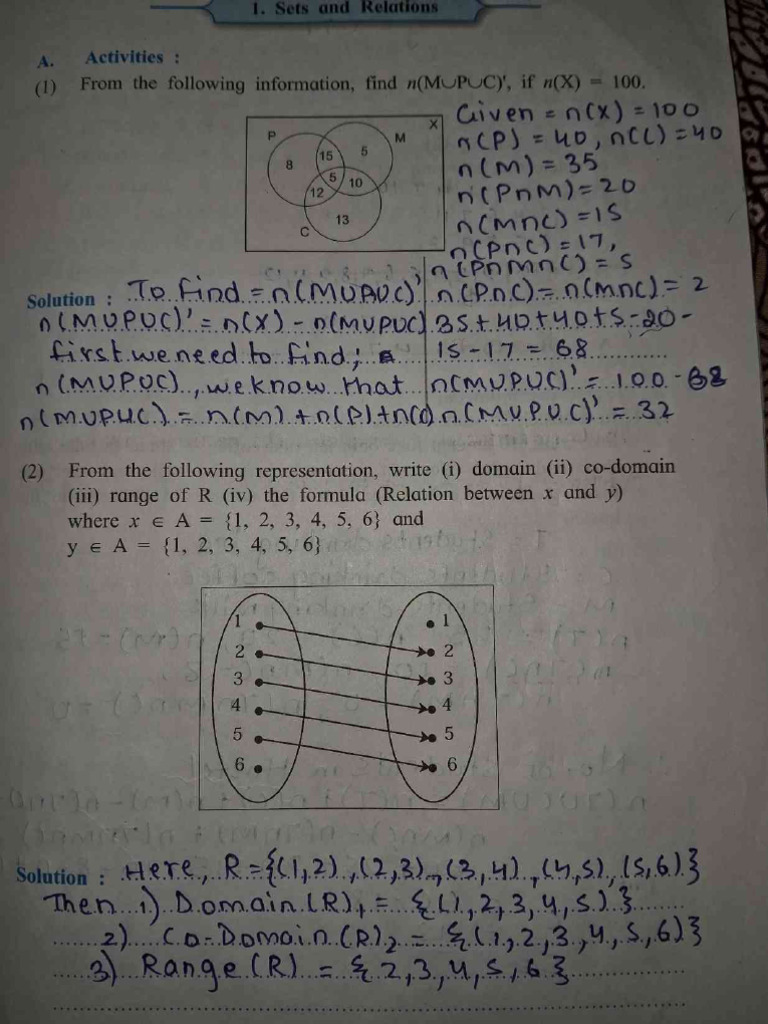 1. Sets and Relations
A. Activities :
(1) From the following information, find n(M∪P∪C)', if n(X) = 100.
P
M
X
8
15
5
5
10
12
13
C
Given = n(X) = 100
n(P) = 40, n(C) = 40
n(M) = 35
n(P∩M) = 20
n(M∩C) = 15
n(P∩C) = 17,
n(P∩M∩C) = 5
Solution : To find = n(MUPUC)'
n(MUPUC)' = n(X) - n(MUPUC)
first we need to find;
n(MUPUC), we know that
n(MUPUC) = n(M) + n(P) + n(C)
n(P∩C) = n(M∩C) = 2
35+40+40+5-20-
15-17 = 68
n(MUPUC)' = 100-68
n(MUPUC)' = 32
(2) From the following representation, write (i) domain (ii) co-domain
(iii) range of R (iv) the formula (Relation between x and y)
where x ∈ A = {1, 2, 3, 4, 5, 6} and
y ∈ A = {1, 2, 3, 4, 5, 6}
1 1
2 2
3 3
4 4
5 5
6 6
Solution : Here, R = {(1,2), (2,3), (3,4), (4,5), (5,6)}
Then 1) Domain (R)1 = {(1,2,3,4,5)}
2) Co-Domain (R)2 = {(1,2,3,4,5,6)}
3) Range (R) = {2,3,4,5,6}